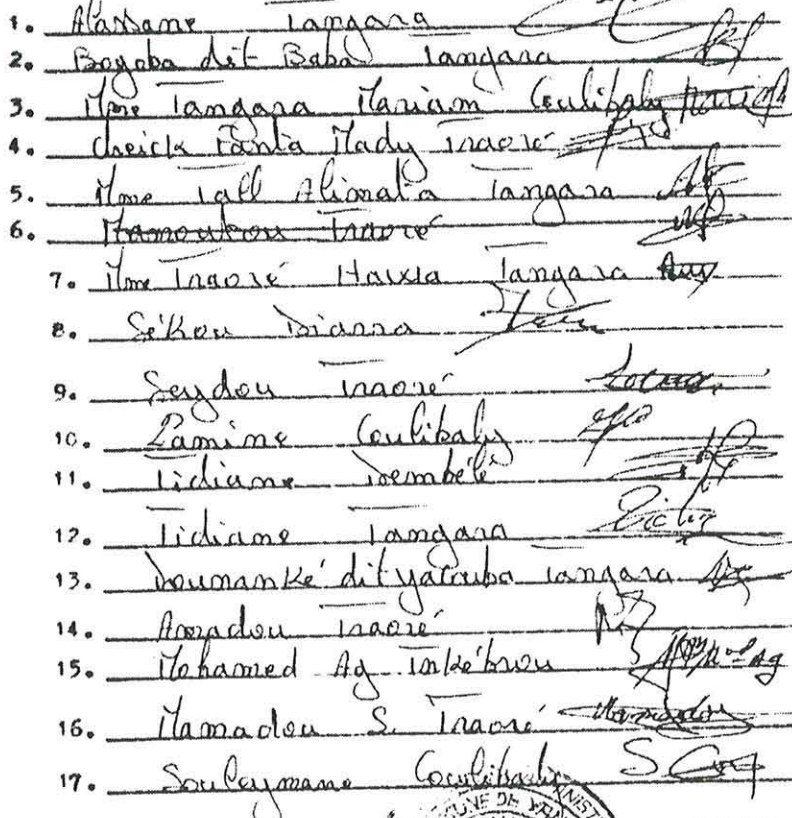 1. Alassane Tangara
2. Bogoba dit Baba Tangara
3. Mme Tangara Mariam Coulibaly
4. Cheick Fanta Mady Traoré
5. Mme Tall Alimata Tangara
6. Mamoutou Traoré
7. Mme Traoré Tangara
8. Sékou Diarra
9. Seydou Traoré
10. Lamine Coulibaly
11. Tidiane Dembélé
12. Tidiane Tangara
13. dit yacouba Tangara
14. Amadou Traoré
15. Mohamed Ag
16. Mamadou S. Traoré
17. Souleymane Coulibaly